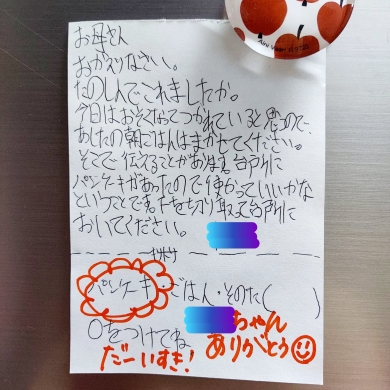 お母さん
おかえりなさい。
たのしんでこれましたか。
今日はおそくなってつかれていると思うので、
あしたの朝ごはんはまかせてください。
そこで伝えることがあります。台所に
パンケーキがあったので使かっていいかな
ということです。下を切り取って台所に
おいてください。
パンケーキ・ごはん・その他(　　　)
○をつけてね
ちゃん
だーいすき! ありがとう